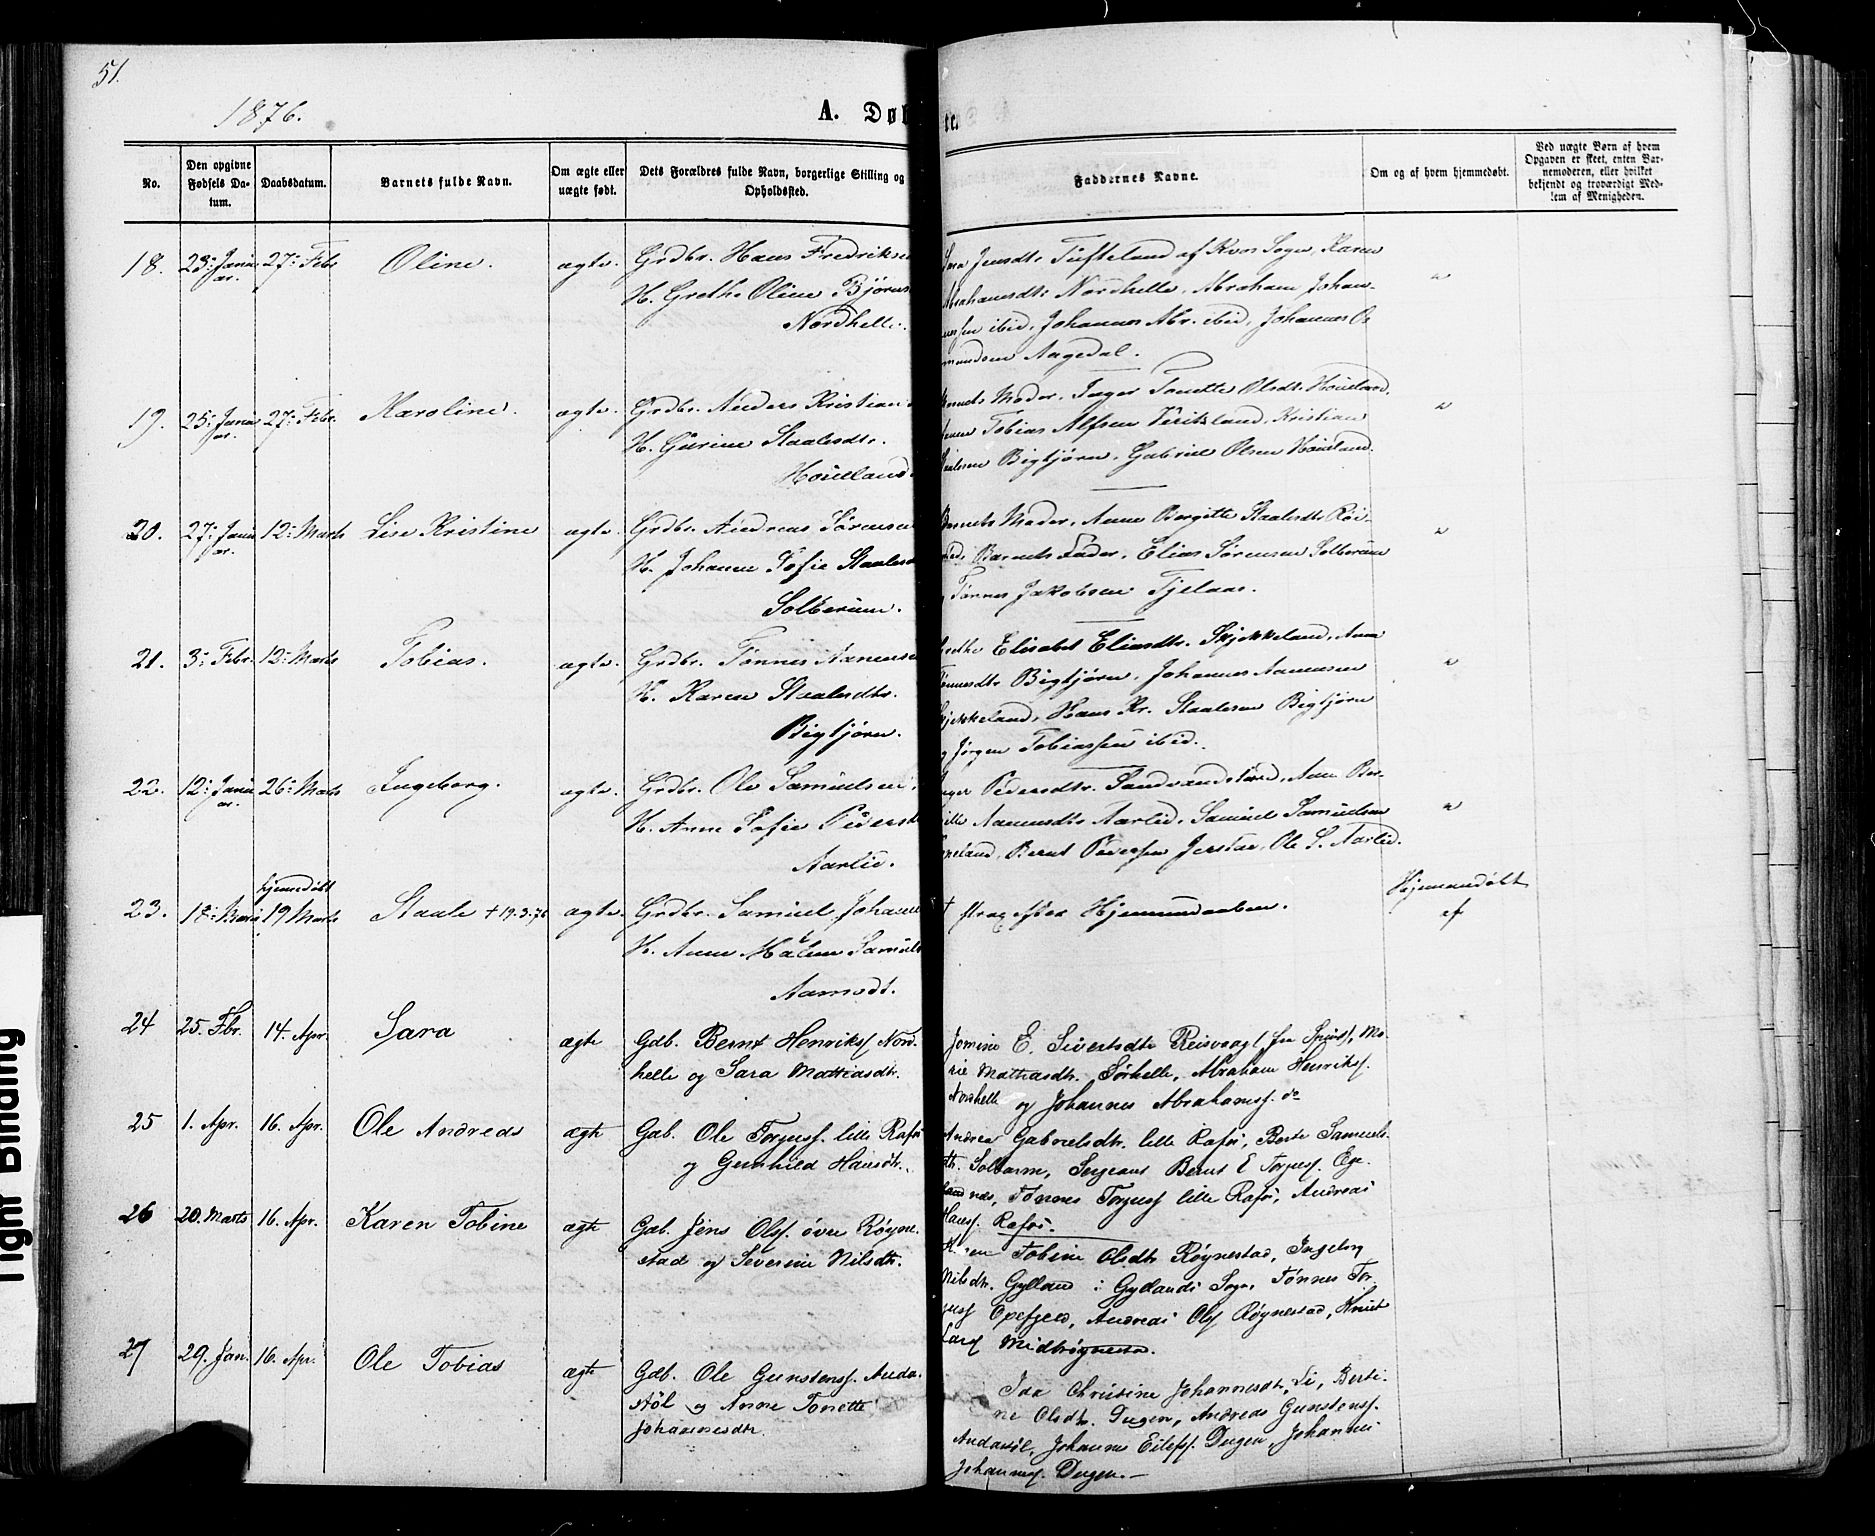 51.
1876.
A. Døb
te.
No.
Den opgivne Fødsels Datum.
Daabsdatum.
Barnets fulde Navn.
Om ægte eller uægte født.
Dets Forældres fulde Navn, borgerlige Stilling og Opholdssted.
Faddernes Navne.
Om og af hvem hjemmedøbt.
Ved uægte Børn af hvem Opgaven er skeet, enten Barnemoderen, eller hvilket bekjendt og troværdigt Medlem af Menigheden.
18. 23: Janu 27: Febr Oline. ægte. Grdbr. Hans Fredriksen
ar.
H. Grethe Oline Bjørns
Nordhelle.
Sara Jensdtr Tufteland af Kvos Sogn, Karen
Abrahamsdtr Nordhelle, Abraham Johan-
nesen ibid, Johannes Abr. ibid, Johannes O
mundsen Aagedal.
19. 25: Janu 27: Febr. Karoline. ægte. Grdbr. Anders Kristian
ar.
H. Gurine Staalesdtr.
Houeland.
Barnets Moder, Inger Tonette Olsdtr. Houeland,
Tobias Alfsen Kristian
Staalesen Bigtjørn, Gabriel Olsen Houeland.
20. 27: Janu 12: Marts Lise Kristine ægte. Grdbr. Andreas Sørensen
ar.
H. Johanne Sofie Staalesd
Solberum.
Barnets Moder, Anne Bergitte Staalesdtr
Barnets Fader, Elias Sørensen Solberum
Tønnes Jakobsen Fjelaas.
21. 3: Febr. 12: Marts Tobias. ægte. Grdbr. Tønnes Aanensen
H. Karen Staalesdtr.
Bigtjørn.
Grethe Elisabet Eliasdtr. Skjekkeland, Anne
Tønnesdtr Bigtjørn, Johannes Aanensen
Skjekkeland, Hans Kr. Staalesen Bigtjørn
og Jørgen Tobiassen ibid.
22. 12: Janu 26: Marts Ingeborg. ægte. Grdbr. Ole Samuelsen
ar.
H. Anne Sofie Pedersd
Aarlie.
Inger Pedersdtr. Sandvand Ane Ber-
gitte Aanensdtr Aarlie, Samuel Samuelsen
Bernt Pedersen Jerstad, Ole S. Aarlie.
hjemmedøbt
23. 18: Marts 19 Marts Staale + 19.3.76 ægte. Grdbr. Samuel Johann
H. Anne Malene Samuels
Aamodt.
strax efter Hjemmedaaben.
Hjemmedøbt
af
24 25. Fbr. 14. Apr. Sara ægte Gdb. Bernt Henriks. Nord-
helle og Sara Mattiasdtr.
Jomine E. Sivertsdtr Reisvaag, Ma-
rie Mathiasdtr. Sørhelle, Abraham Henriks.
Nordhelle og Johannes Abrahams. do
25 1. Apr. 16. Apr. Ole Andreas ægte Gab. Ole Torguss. lille Rafos
og Gunhild Hansdtr.
Andrea Gabrielsdtr. lille Rafos, Berte Samuels-
dtr. Solbørm, Sergeant Bernt E Torges. Ege
landnes, Tønnes Torguss lille Rafos, Andreas
Hans. Rafos.
26 20. Marts 16. Apr. Karen Tobine ægte Gab. Jens Ols. øvre Røyne-
stad og Severine Nilsdtr.
Karen Tobine Olsdtr Røynestad, Ingeborg
Nilsdtr. Gylland i Gyllands Sogn, Tønnes Tor-
guss Oxefjeld, Andreas Ols Røynestad, Knut
Lars. Midtrøynestad.
27 29. Jan. 16. Apr. Ole Tobias ægte Gdb. Ole Gunstenss. Anda-
støl og Anne Tonette
Johannesdtr.
Ida Christine Johannesdtr. Li, Berti-
ne Olsdtr. Dugen, Andreas Gunstenss.
Andastøl, Johannes Eilefs. Dugen, Johannes
Johanness. Dugen.
Tight Binding